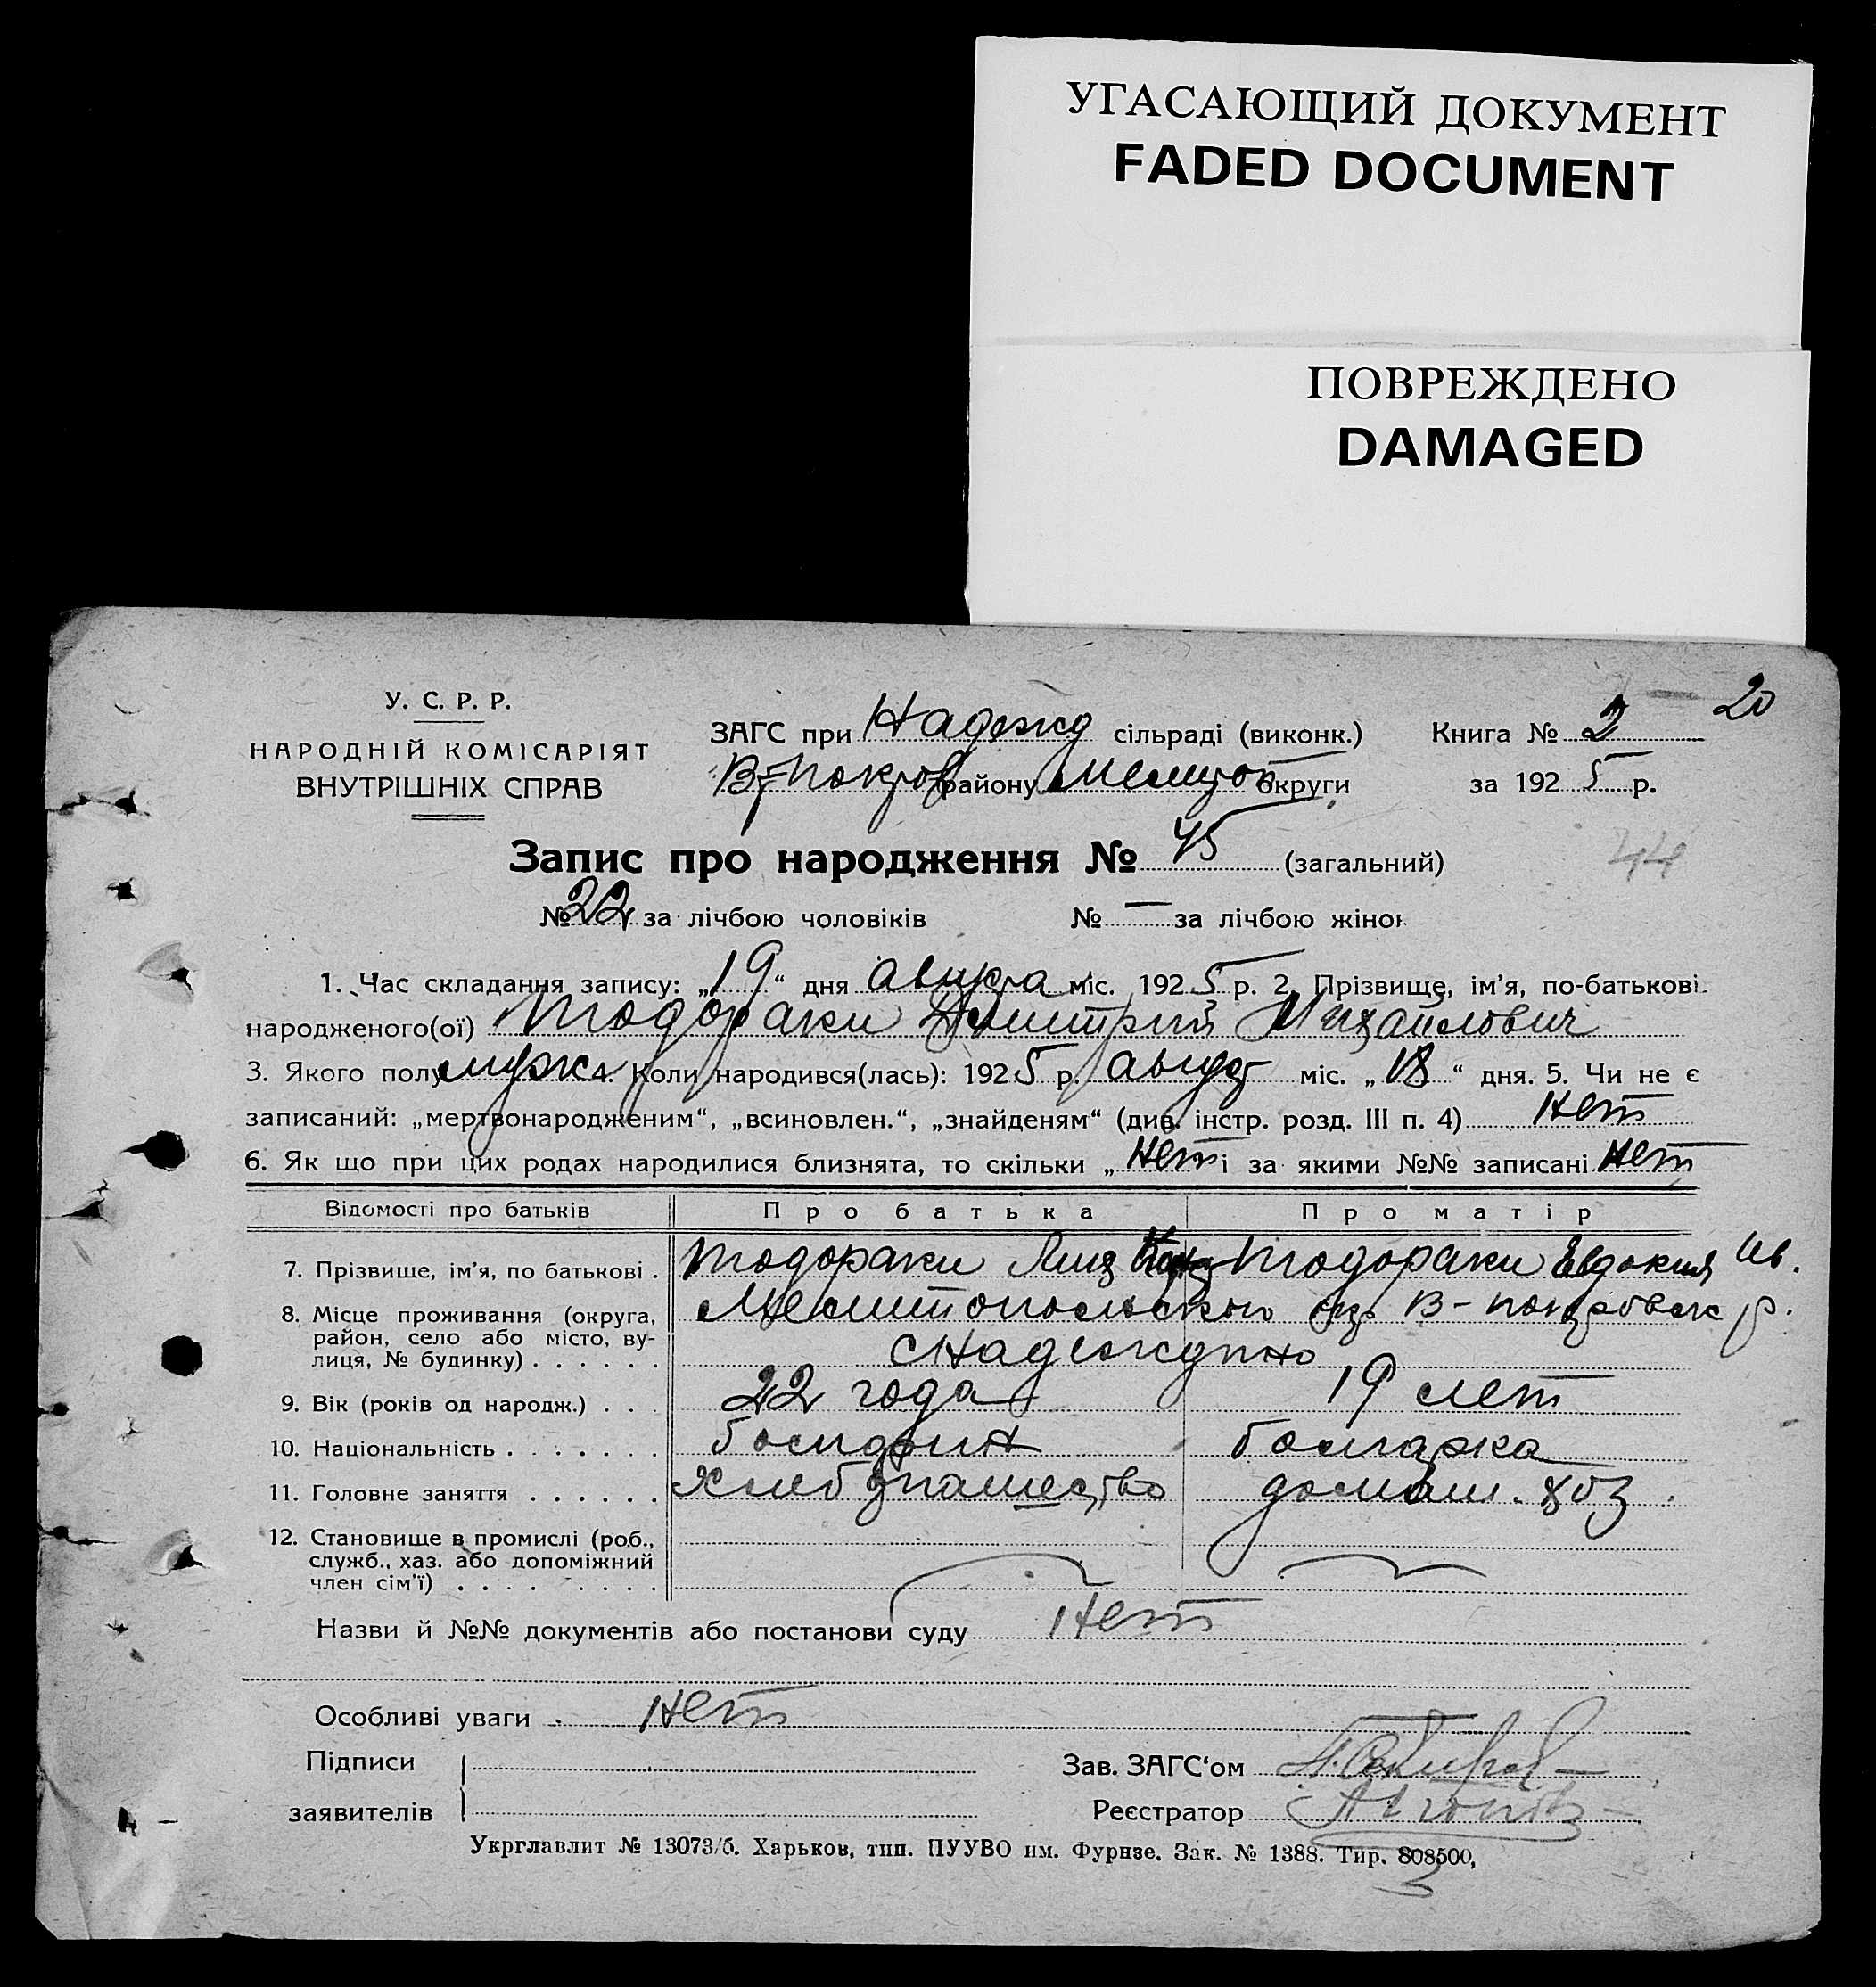 УГАСАЮЩИЙ ДОКУМЕНТ
FADED DOCUMENT
ПОВРЕЖДЕНО
DAMAGED
20
У. С. Р. Р.
НАРОДНІЙ КОМІСАРІЯТ
ВНУТРІШНІХ СПРАВ
ЗАГС при Надежд сільраді (виконк.) Книга № 2
В-Покров району Мелитоп округи за 1925 р.
Запис про народження № 45 (загальний) 44
№ 22 за лічбою чоловіків № — за лічбою жінок
1. Час складання запису: „19“ дня августа міс. 1925 р. 2. Прізвище, ім’я, по-батькові
народженого(ої) Тодораки Дмитрий Михайлович
3. Якого полу мужс. 4. Коли народився(лась): 1925 р. август міс. „18“ дня. 5. Чи не є
записаний: „мертвонародженим“, „всиновлен.“, „знайденям“ (див. інстр. розд. III п. 4) нет
6. Як що при цих родах народилися близнята, то скільки „нет і за якими №№ записані нет
Відомості про батьків Про батька Про матір
7. Прізвище, ім’я, по батькові . Тодораки Тодораки Евдокия Ив.
8. Місце проживання (округа, Мелитопольского окр В-Покровск р.
район, село або місто, ву-
лиця, № будинку) . . . . . .
9. Вік (років од народж.) . . . 22 года 19 лет
10. Національність . . . . . . . болгарин болгарка
11. Головне заняття . . . . . . Хлебопашество домаш. хоз.
12. Становище в промислі (роб.,
служб., хаз. або допоміжний
член сім’ї) . . . . . . . . .
Назви й №№ документів або постанови суду нет
Особливі уваги . нет
Підписи Зав. ЗАГС‘ом
заявителів Реєстратор
Укрглавлит № 13073/б. Харьков, тип. ПУУВО им. Фурнзе. Зак. № 1388. Тир. 808500,
3